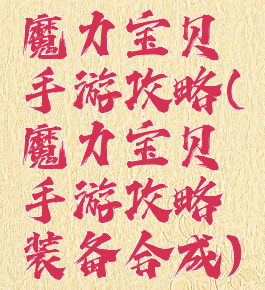 魔力宝贝
手游攻略(
魔力宝贝
手游攻略
装备合成)